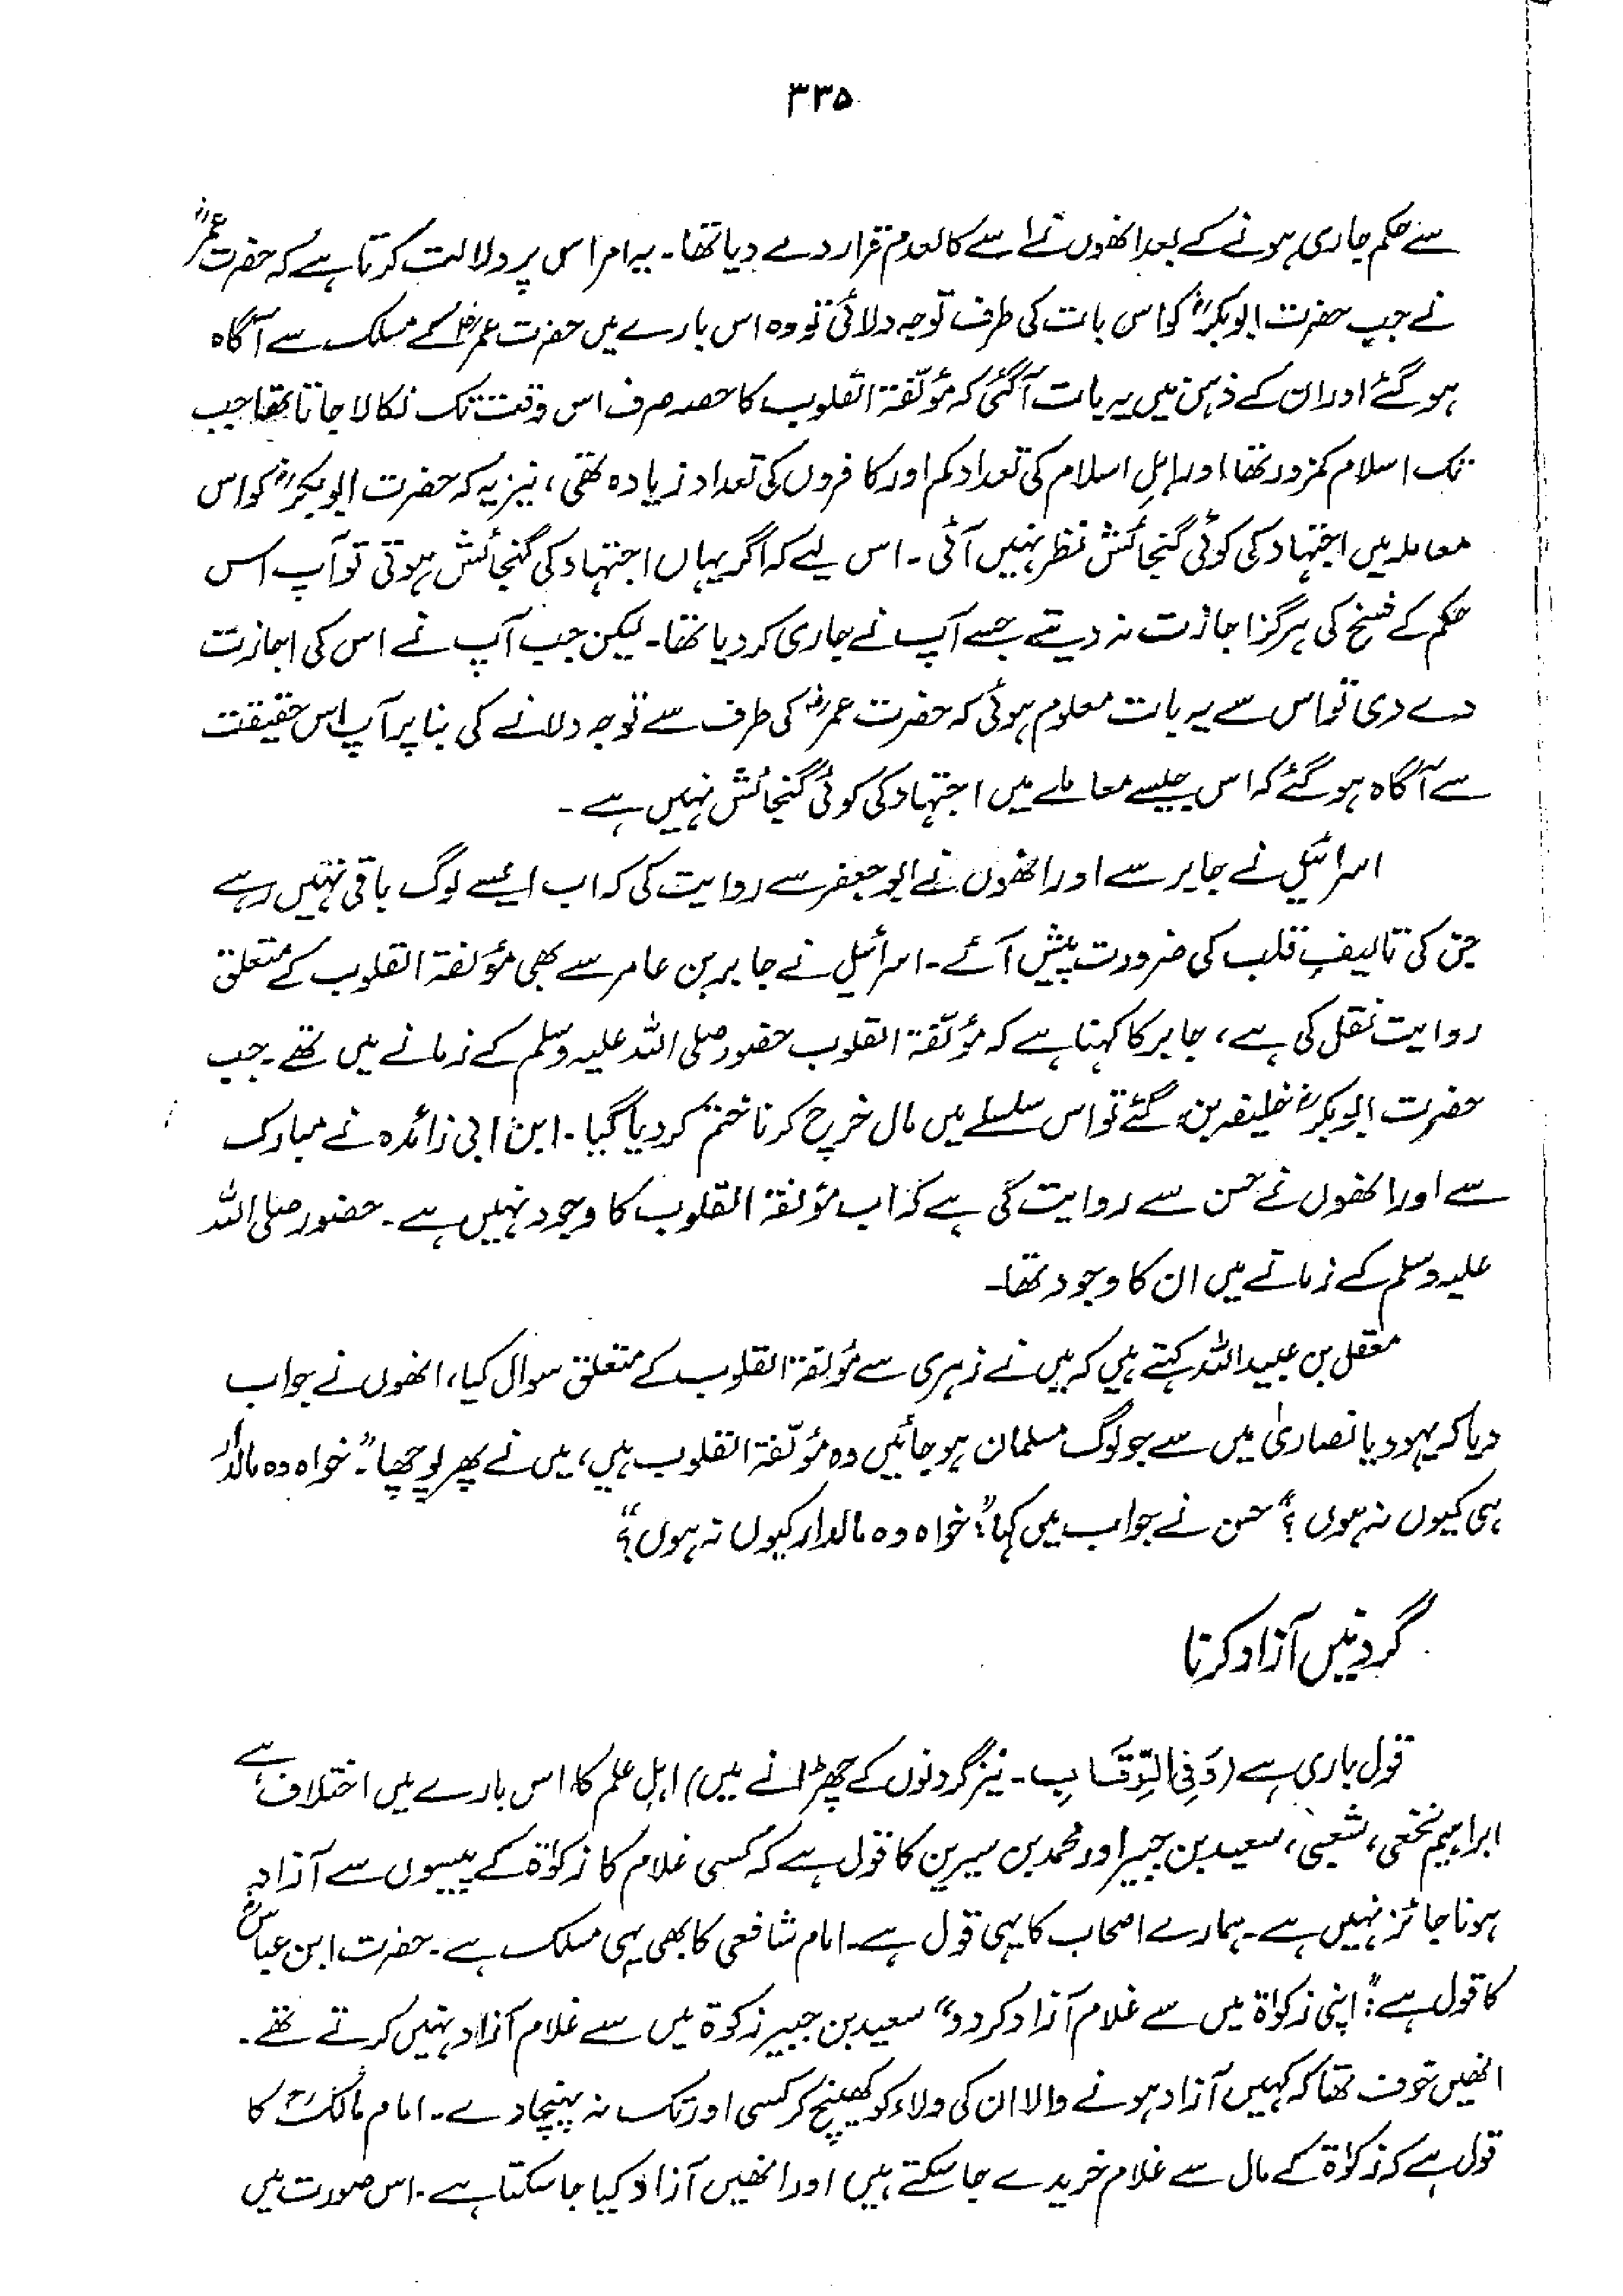 ۳۳۵
سے حکم جاری ہونے کے بعد انھوں نے اسے کالعدم قرار دے دیا تھا۔ یہ امر اس پر دلالت کرتا ہے کہ حضرت عمرؓ
نے جب حضرت ابوبکرؓ کو اس بات کی طرف توجہ دلائی تو وہ اس بارے میں حضرت عمرؓ کے مسلک سے آگاہ
ہو گئے اور ان کے ذہن میں یہ بات آگئی کہ مؤلّفۃ القلوب کا حصہ صرف اس وقت تک نکالا جاتا تھا جب
تک اسلام کمزور تھا اور اہلِ اسلام کی تعداد کم اور کافروں کی تعداد زیادہ تھی، نیز یہ کہ حضرت ابوبکرؓ کو اس
معاملہ میں اجتہاد کی کوئی گنجائش نظر نہیں آئی۔ اس لیے کہ اگر یہاں اجتہاد کی گنجائش ہوتی تو آپ اس
حکم کے فسخ کی ہرگز اجازت نہ دیتے جسے آپ نے جاری کر دیا تھا۔ لیکن جب آپ نے اس کی اجازت
دے دی تو اس سے یہ بات معلوم ہوئی کہ حضرت عمرؓ کی طرف سے توجہ دلانے کی بنا پر آپ اس حقیقت
سے آگاہ ہو گئے کہ اس جیسے معاملے میں اجتہاد کی کوئی گنجائش نہیں ہے۔
اسرائیل نے جابر سے اور انھوں نے ابوجعفر سے روایت کی کہ اب ایسے لوگ باقی نہیں رہے
جن کی تالیفِ قلب کی ضرورت پیش آئے۔ اسرائیل نے جابر بن عامر سے بھی مؤلفۃ القلوب کے متعلق
روایت نقل کی ہے، جابر کا کہنا ہے کہ مؤلّفۃ القلوب حضور صلی اللہ علیہ وسلم کے زمانے میں تھے۔ جب
حضرت ابوبکرؓ خلیفہ بن گئے تو اس سلسلے میں مال خرچ کرنا ختم کر دیا گیا۔ ابن ابی زائدہ نے مبارک
سے اور انھوں نے حسن سے روایت کی ہے کہ اب مؤلفۃ القلوب کا وجود نہیں ہے۔ حضور صلی اللہ
علیہ وسلم کے زمانے میں ان کا وجود تھا۔
معقل بن عبیداللہ کہتے ہیں کہ میں نے زہری سے مؤلفۃ القلوب کے متعلق سوال کیا، انھوں نے جواب
دیا کہ یہود یا نصاریٰ میں سے جو لوگ مسلمان ہو جائیں وہ مؤلّفۃ القلوب ہیں، میں نے پھر پوچھا "خواہ وہ مالدار
ہی کیوں نہ ہوں؟" حسن نے جواب میں کہا: "خواہ وہ مالدار کیوں نہ ہوں؟"
گردنیں آزاد کرنا
قول باری ہے (وَفِی الرِّقَابِ۔ نیز گردنوں کے چھڑانے میں) اہل علم کا اس بارے میں اختلاف ہے
ابراہیم نخعی، شعبی، سعید بن جبیر اور محمد بن سیرین کا قول ہے کہ کسی غلام کا زکوٰۃ کے پیسوں سے آزاد
ہونا جائز نہیں ہے۔ ہمارے اصحاب کا یہی قول ہے۔ امام شافعی کا بھی یہی مسلک ہے۔ حضرت ابن عباسؓ
کا قول ہے: "اپنی زکوٰۃ میں سے غلام آزاد کر دو" سعید بن جبیر زکوۃ میں سے غلام آزاد نہیں کرتے تھے۔
انھیں خوف تھا کہ کہیں آزاد ہونے والا ان کی ولاء کو کھینچ کر کسی اور تک نہ پہنچا دے۔ امام مالکؒ کا
قول ہے کہ زکوٰۃ کے مال سے غلام خریدے جا سکتے ہیں اور انھیں آزاد کیا جا سکتا ہے۔ اس صورت میں